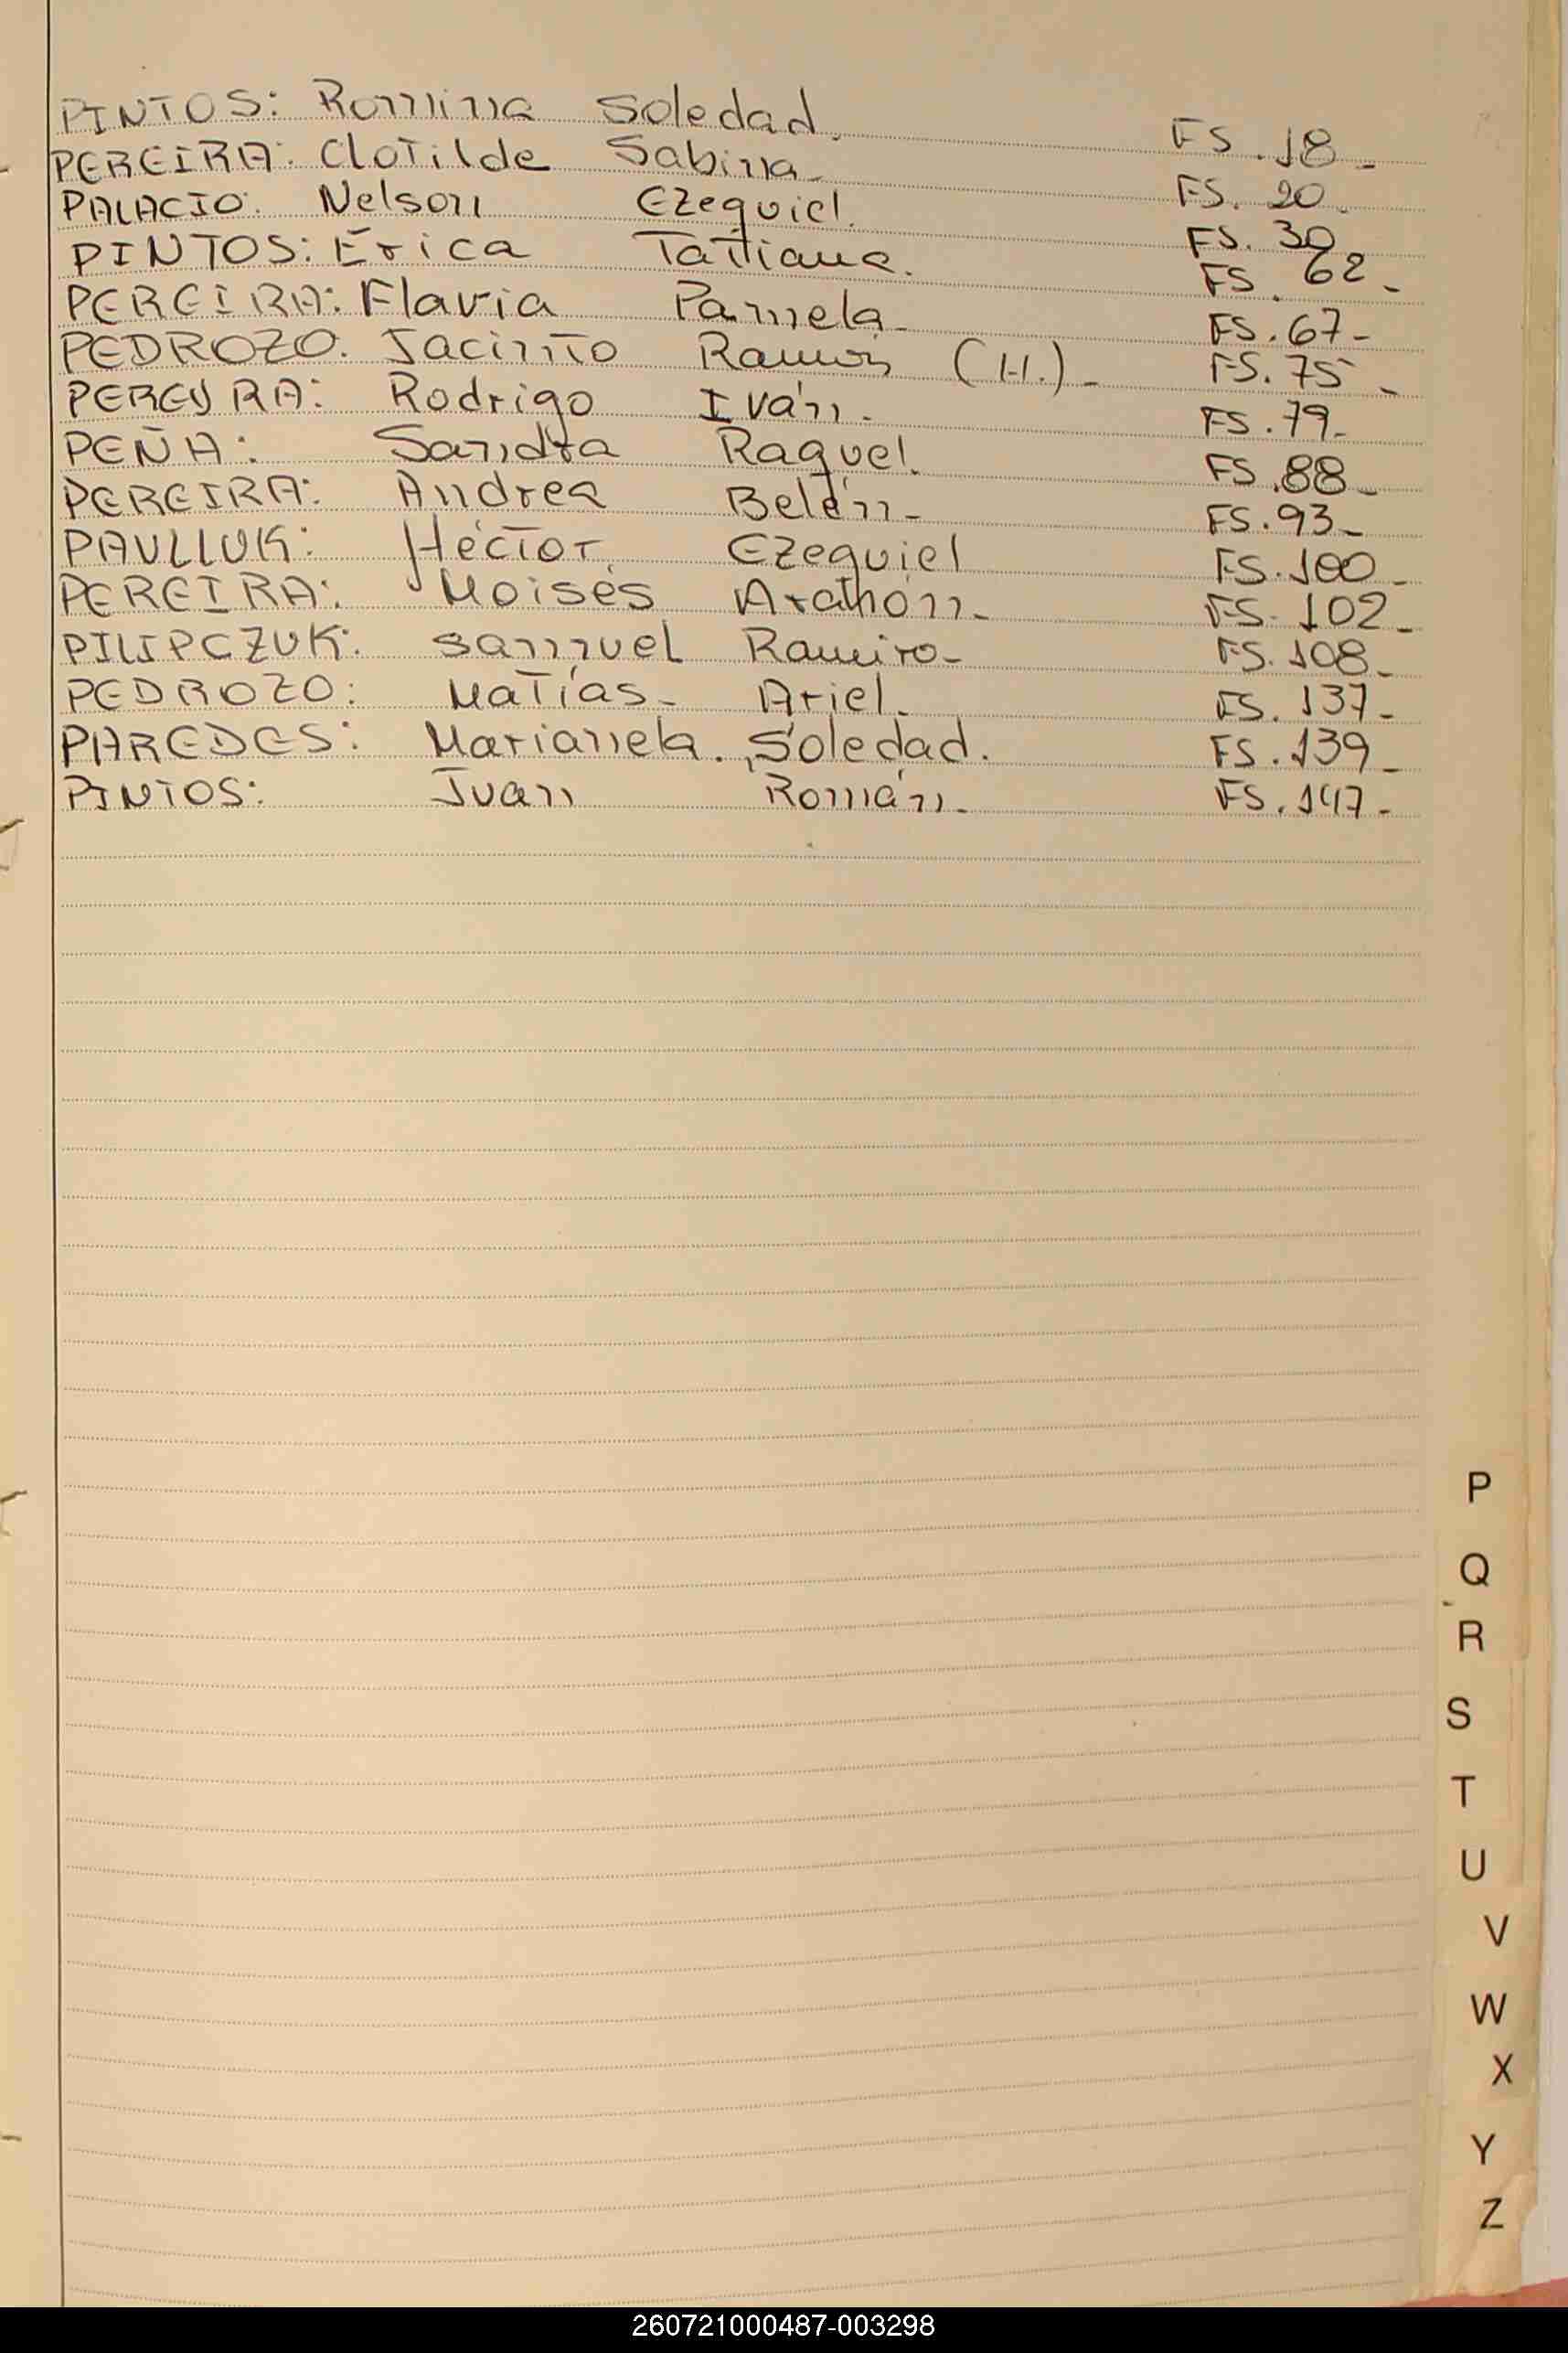 PINTOS: Romina Soledad. FS. 18-
PEREIRA: Clotilde Sabina- FS. 20.
PALACIO: Nelson Ezequiel. FS. 30
PINTOS: Erica Tatiana. FS. 62-
PEREIRA: Flavia Pamela- FS. 67-
PEDROZO. Jacinto Ramón (H.)- FS. 75-
PEREYRA: Rodrigo Iván- FS. 79-
PEÑA: Sandra Raquel. FS. 88-
PEREIRA: Andrea Belén- FS. 93-
PAVLLUK: Héctor Ezequiel FS. 100-
PEREIRA: Moisés Arahón- FS. 102-
PILIPCZUK: Samuel Ramiro- FS. 108-
PEDROZO: Matías- Ariel- FS. 137-
PAREDES: Marianela. Soledad. FS. 139-
PINTOS: Juan Román- FS. 147-
P
Q
R
S
T
U
V
W
X
Y
Z
260721000487-003298